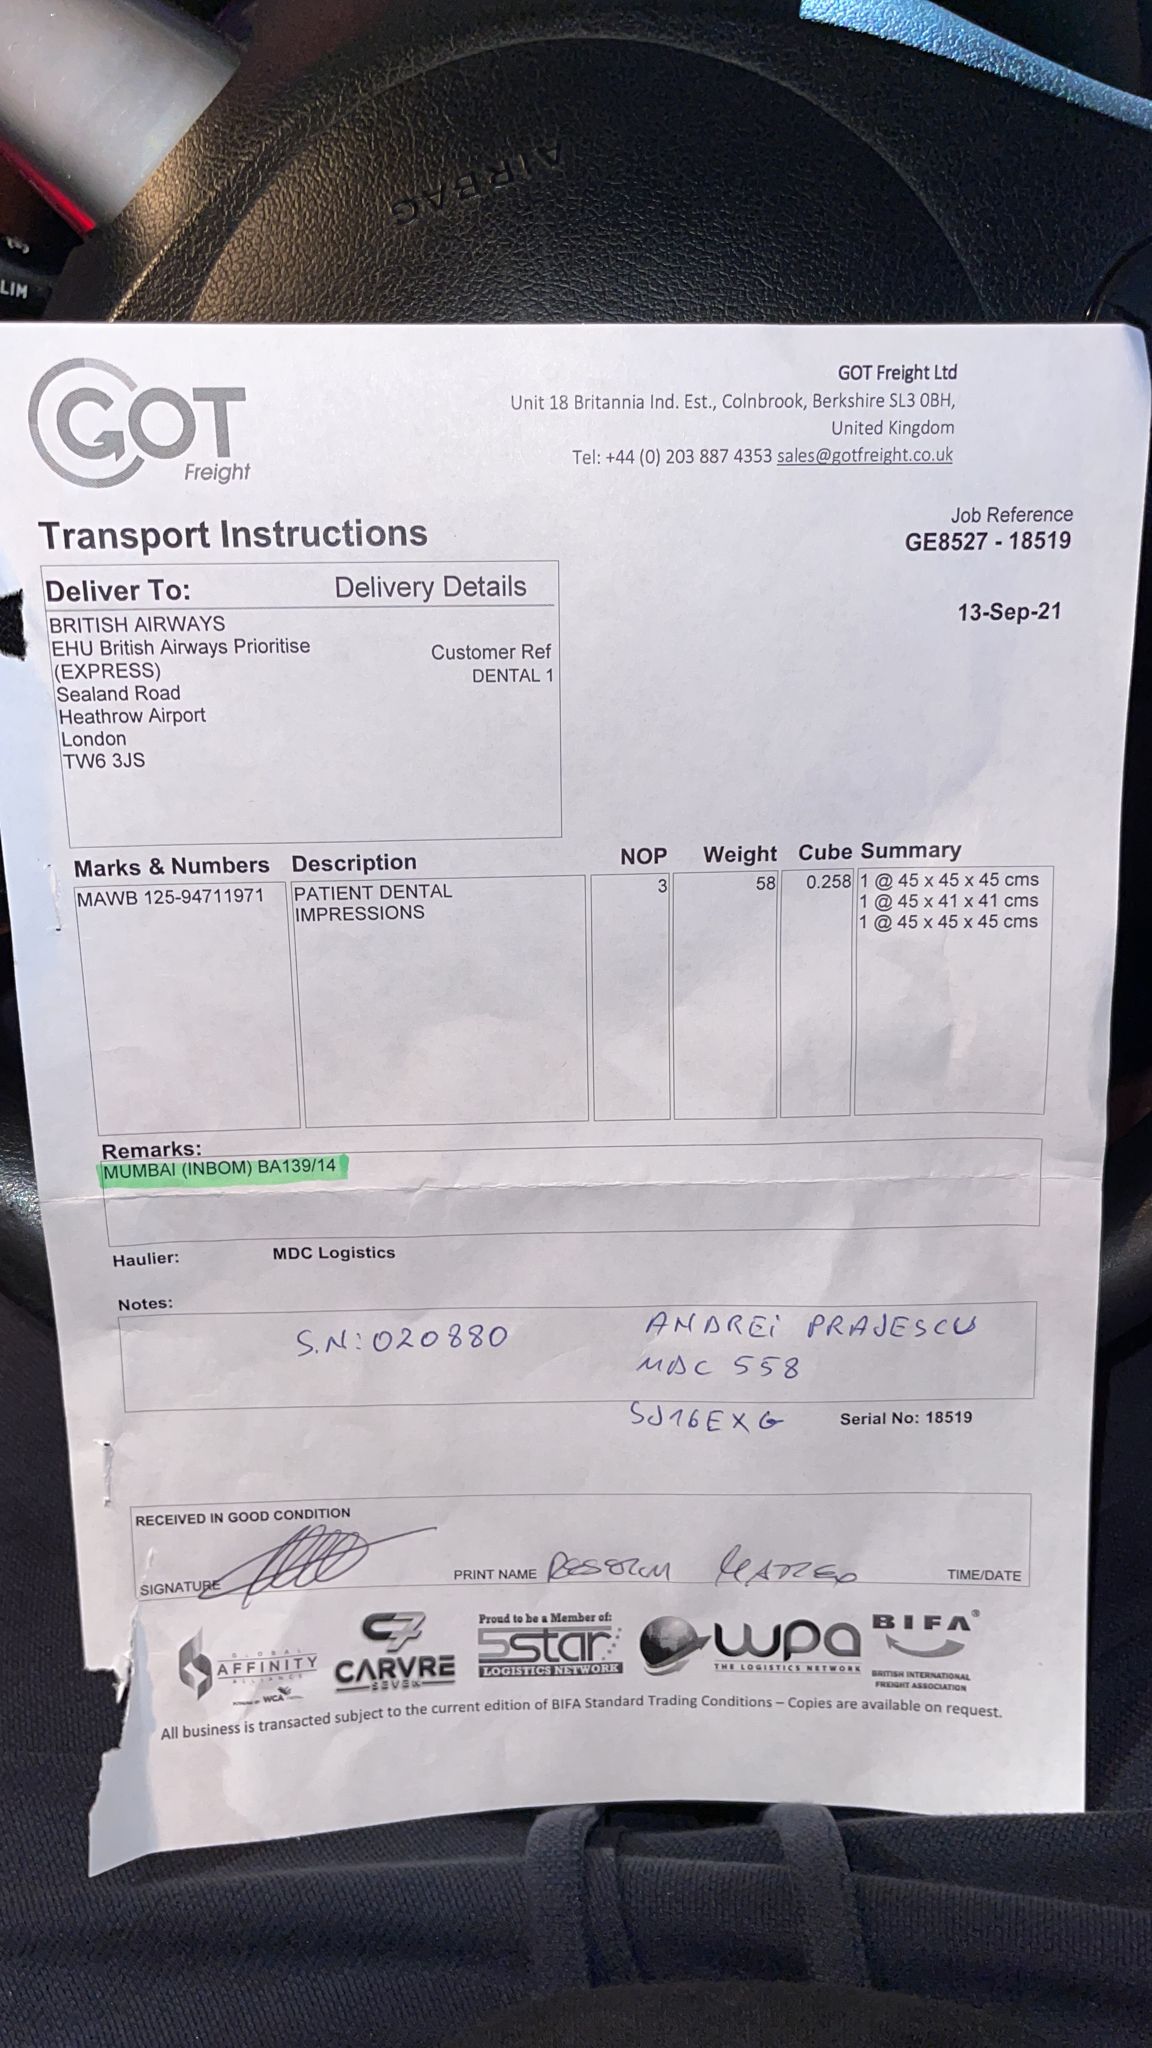 AIRBAG
LIM
GOT
Freight
GOT Freight Ltd
Unit 18 Britannia Ind. Est., Colnbrook, Berkshire SL3 0BH,
United Kingdom
Tel: +44 (0) 203 887 4353 sales@gotfreight.co.uk
Transport Instructions
Job Reference
GE8527 - 18519
13-Sep-21
Deliver To: Delivery Details
BRITISH AIRWAYS
EHU British Airways Prioritise
(EXPRESS)
Sealand Road
Heathrow Airport
London
TW6 3JS
Customer Ref
DENTAL 1
Marks & Numbers Description NOP Weight Cube Summary
MAWB 125-94711971 PATIENT DENTAL 3 58 0.258 1 @ 45 x 45 x 45 cms
IMPRESSIONS 1 @ 45 x 41 x 41 cms
1 @ 45 x 45 x 45 cms
Remarks:
MUMBAI (INBOM) BA139/14
Haulier: MDC Logistics
Notes:
S.N: 020880 ANDREI PRAJESCU
MDC 558
SJ16EXG Serial No: 18519
RECEIVED IN GOOD CONDITION
SIGNATURE PRINT NAME TIME/DATE
GLOBAL
AFFINITY
ALLIANCE
POWERED BY WCA
C7
CARVRE
SEVEN
Proud to be a Member of:
5star
LOGISTICS NETWORK
wpa
THE LOGISTICS NETWORK
BIFA®
BRITISH INTERNATIONAL
FREIGHT ASSOCIATION
All business is transacted subject to the current edition of BIFA Standard Trading Conditions – Copies are available on request.